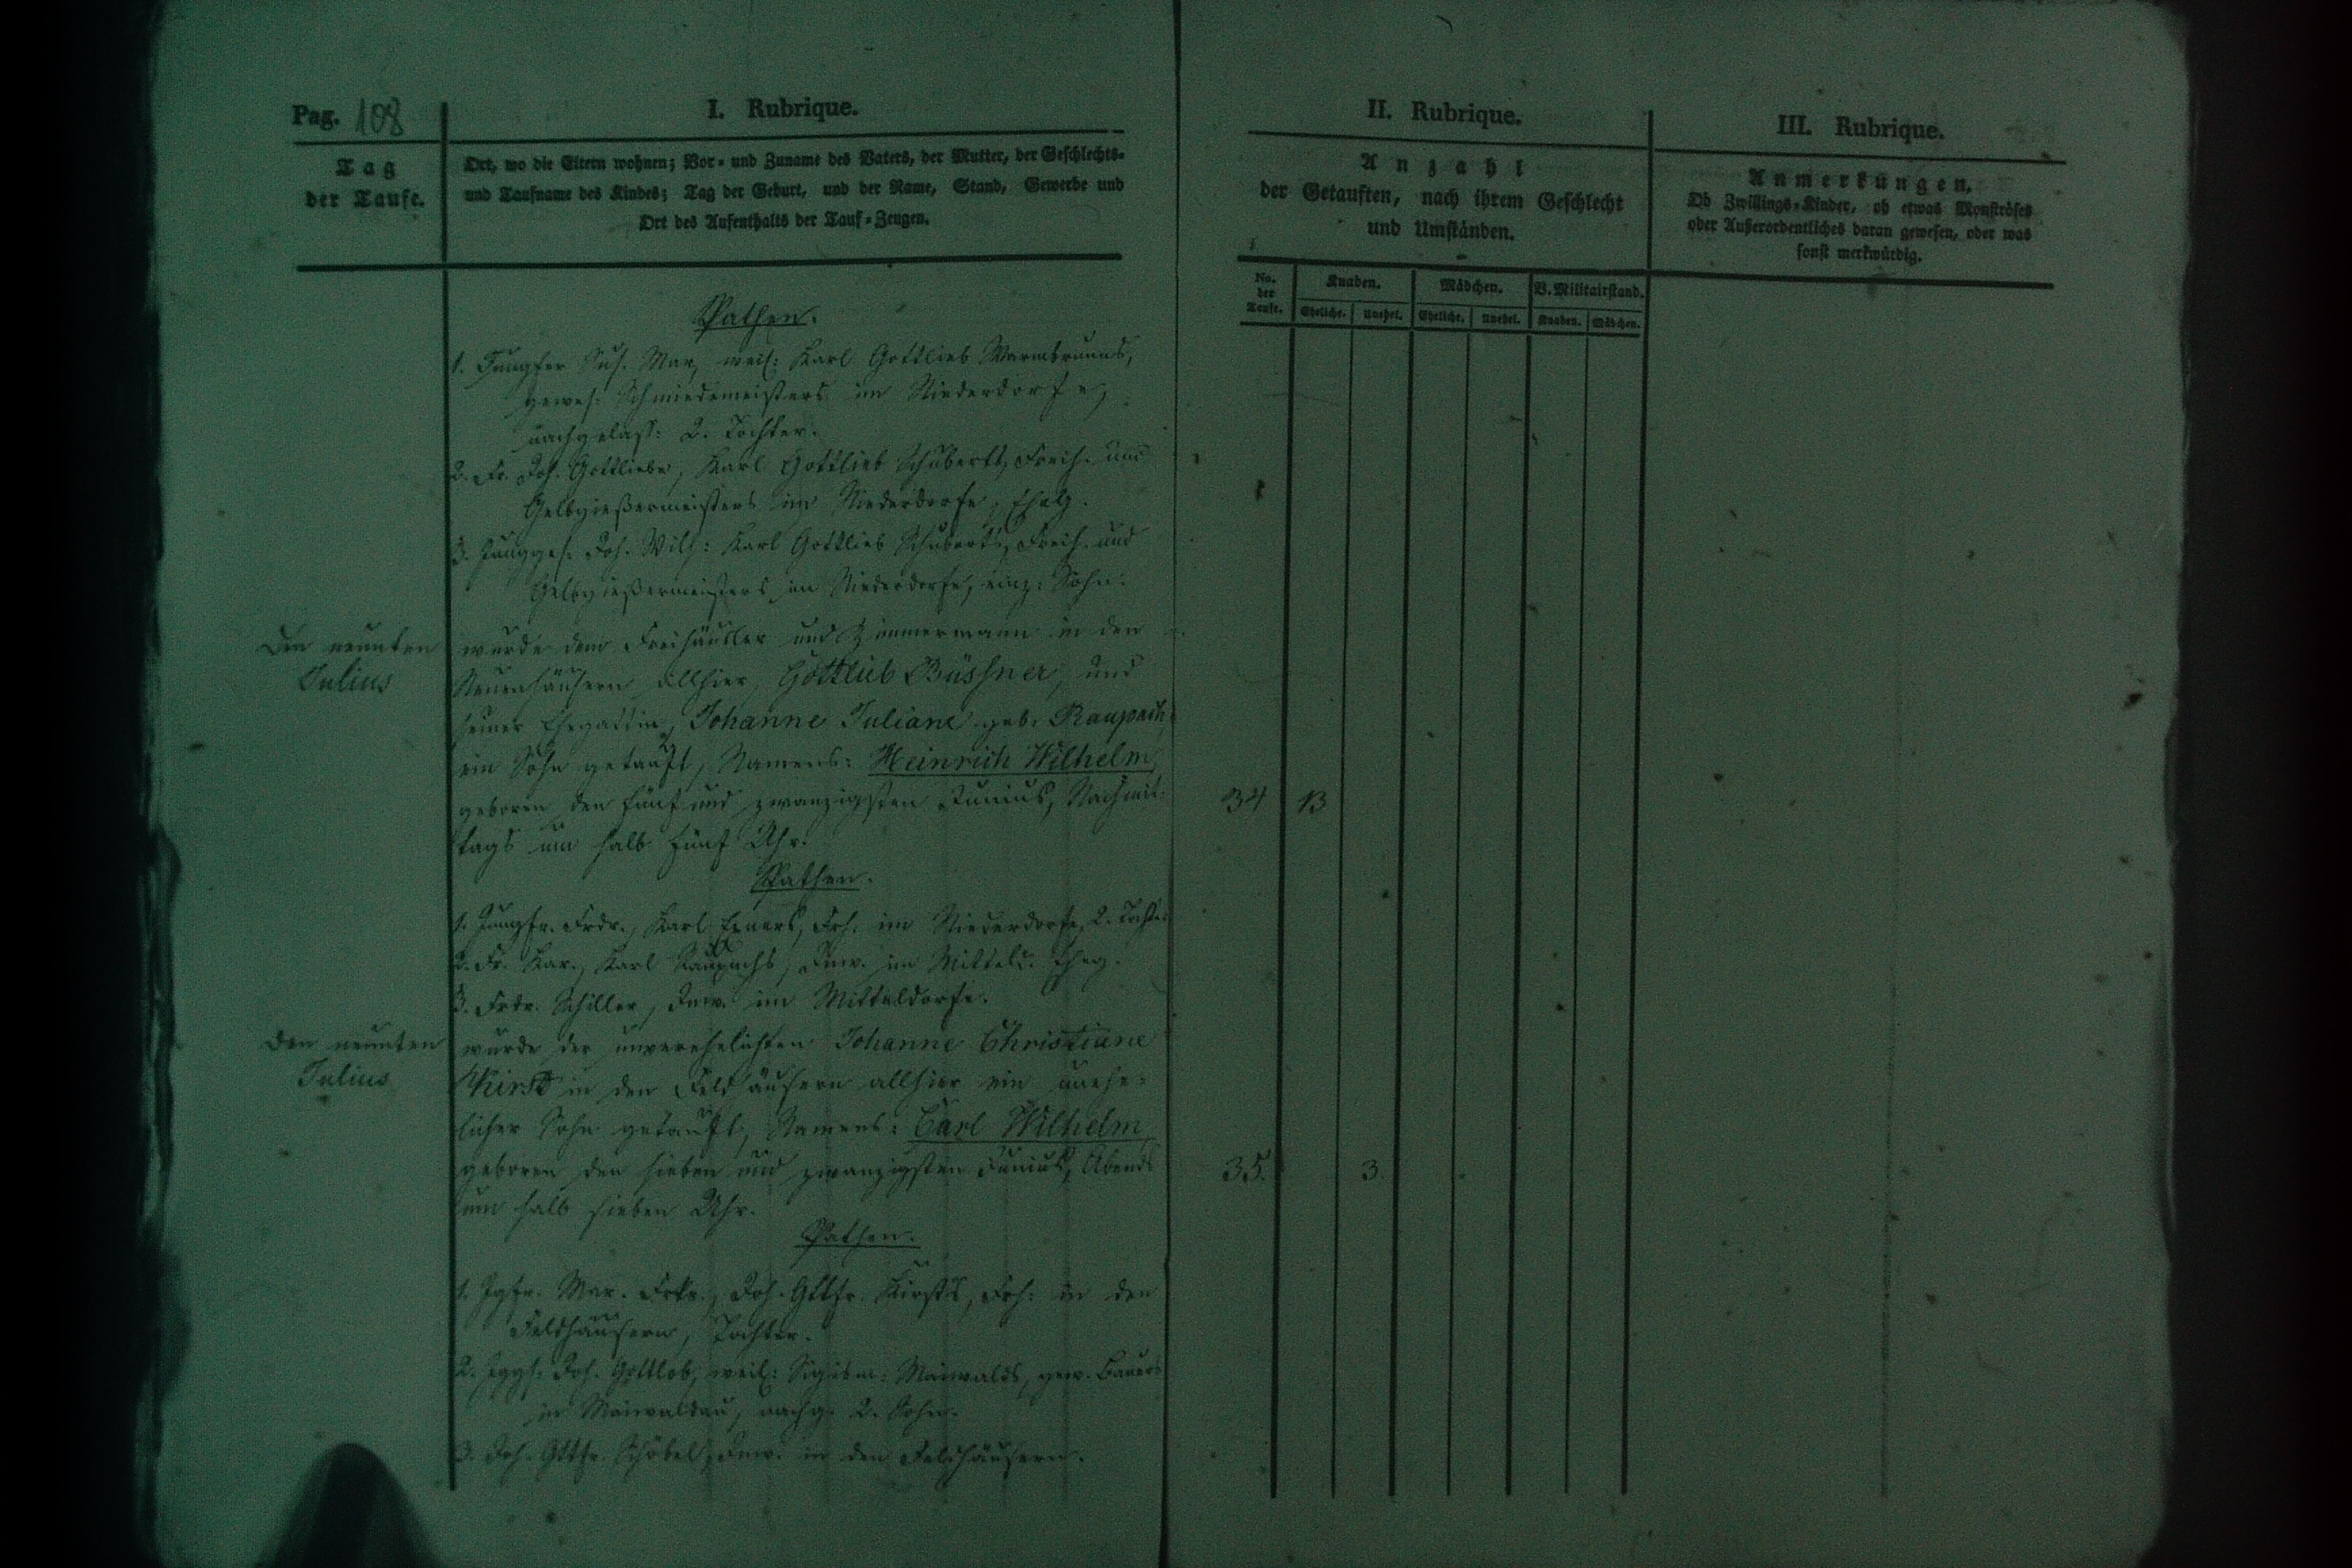 Pag. 108
I. Rubrique.
Tag
der Taufe.
Ort, wo die Eltern wohnen; Vor- und Zuname des Vaters, der Mutter, der Geschlechts-
und Taufname des Kindes; Tag der Geburt, und der Name, Stand, Gewerbe und
Ort des Aufenthalts der Tauf-Zeugen.
Pathen.
1. Jungfer Sus. Mar, weil: Karl Gottlieb Warmbrunns,
gewes: Schmiedemeisters im Niederdorfe,
nachgelass: 2. Tochter.
2. Fr. Joh. Gottliebe, Karl Gottlieb Schubertt, Freih. und
Gelbgießermeisters im Niederdorfe, Eheg.
3. Jungges: Joh. Wilh: Karl Gottlieb Schuberts, Freih. und
Gelbgießermeisters im Niederdorfe, einz: Sohn.
Den neunten
Julius
wurde dem Freihäusler und Zimmermann in den
Neuenhäusern allhier, Gottlieb Büschner, und
seiner Ehegattin, Johanne Juliane geb: Raupach,
ein Sohn getauft, Namens: Heinrich Wilhelm,
geboren den fünf und zwanzigsten Junius, Nachmit:
tags um halb fünf Uhr.
Pathen.
1. Jungfr. Frdr., Karl Exners, Frh. im Niederdorfe, 2. Tochter
2. Fr. Kar., Karl Raupachs, Inw. im Mitteld. Eheg.
3. Frdr. Schiller, Inw. im Mitteldorfe.
Den neunten
Julius
wurde der unverehelichten Johanne Christiane
Kirst in den Feldhäusern allhier ein unehe-
licher Sohn getauft, Namens: Carl Wilhelm,
geboren den sieben und zwanzigsten Junius, Abends
um halb sieben Uhr.
Pathen.
1. Jgfr. Mar. Frdr., Joh. Gttfr. Kirsts, Frh: in den
Feldhäusern, Tochter.
2. Jggs: Joh. Gottlob, weil: Sigism: Maiwalds, gew. Bauers
in Maiwaldau, nachg. 2. Sohn.
3. Joh. Gttfr. Schöbel, Inw. in den Feldhäusern.
II. Rubrique.
Anzahl
der Getauften, nach ihrem Geschlecht
und Umständen.
No.
der
Taufe.
Knaben. Mädchen. V. Militairstand.
Eheliche. Unehel. Eheliche. Unehel. Knaben. Mädchen.
34 13
35. 3.
III. Rubrique.
Anmerkungen.
Ob Zwillings-Kinder, ob etwas Monströses
oder Außerordentliches daran gewesen, oder was
sonst merkwürdig.